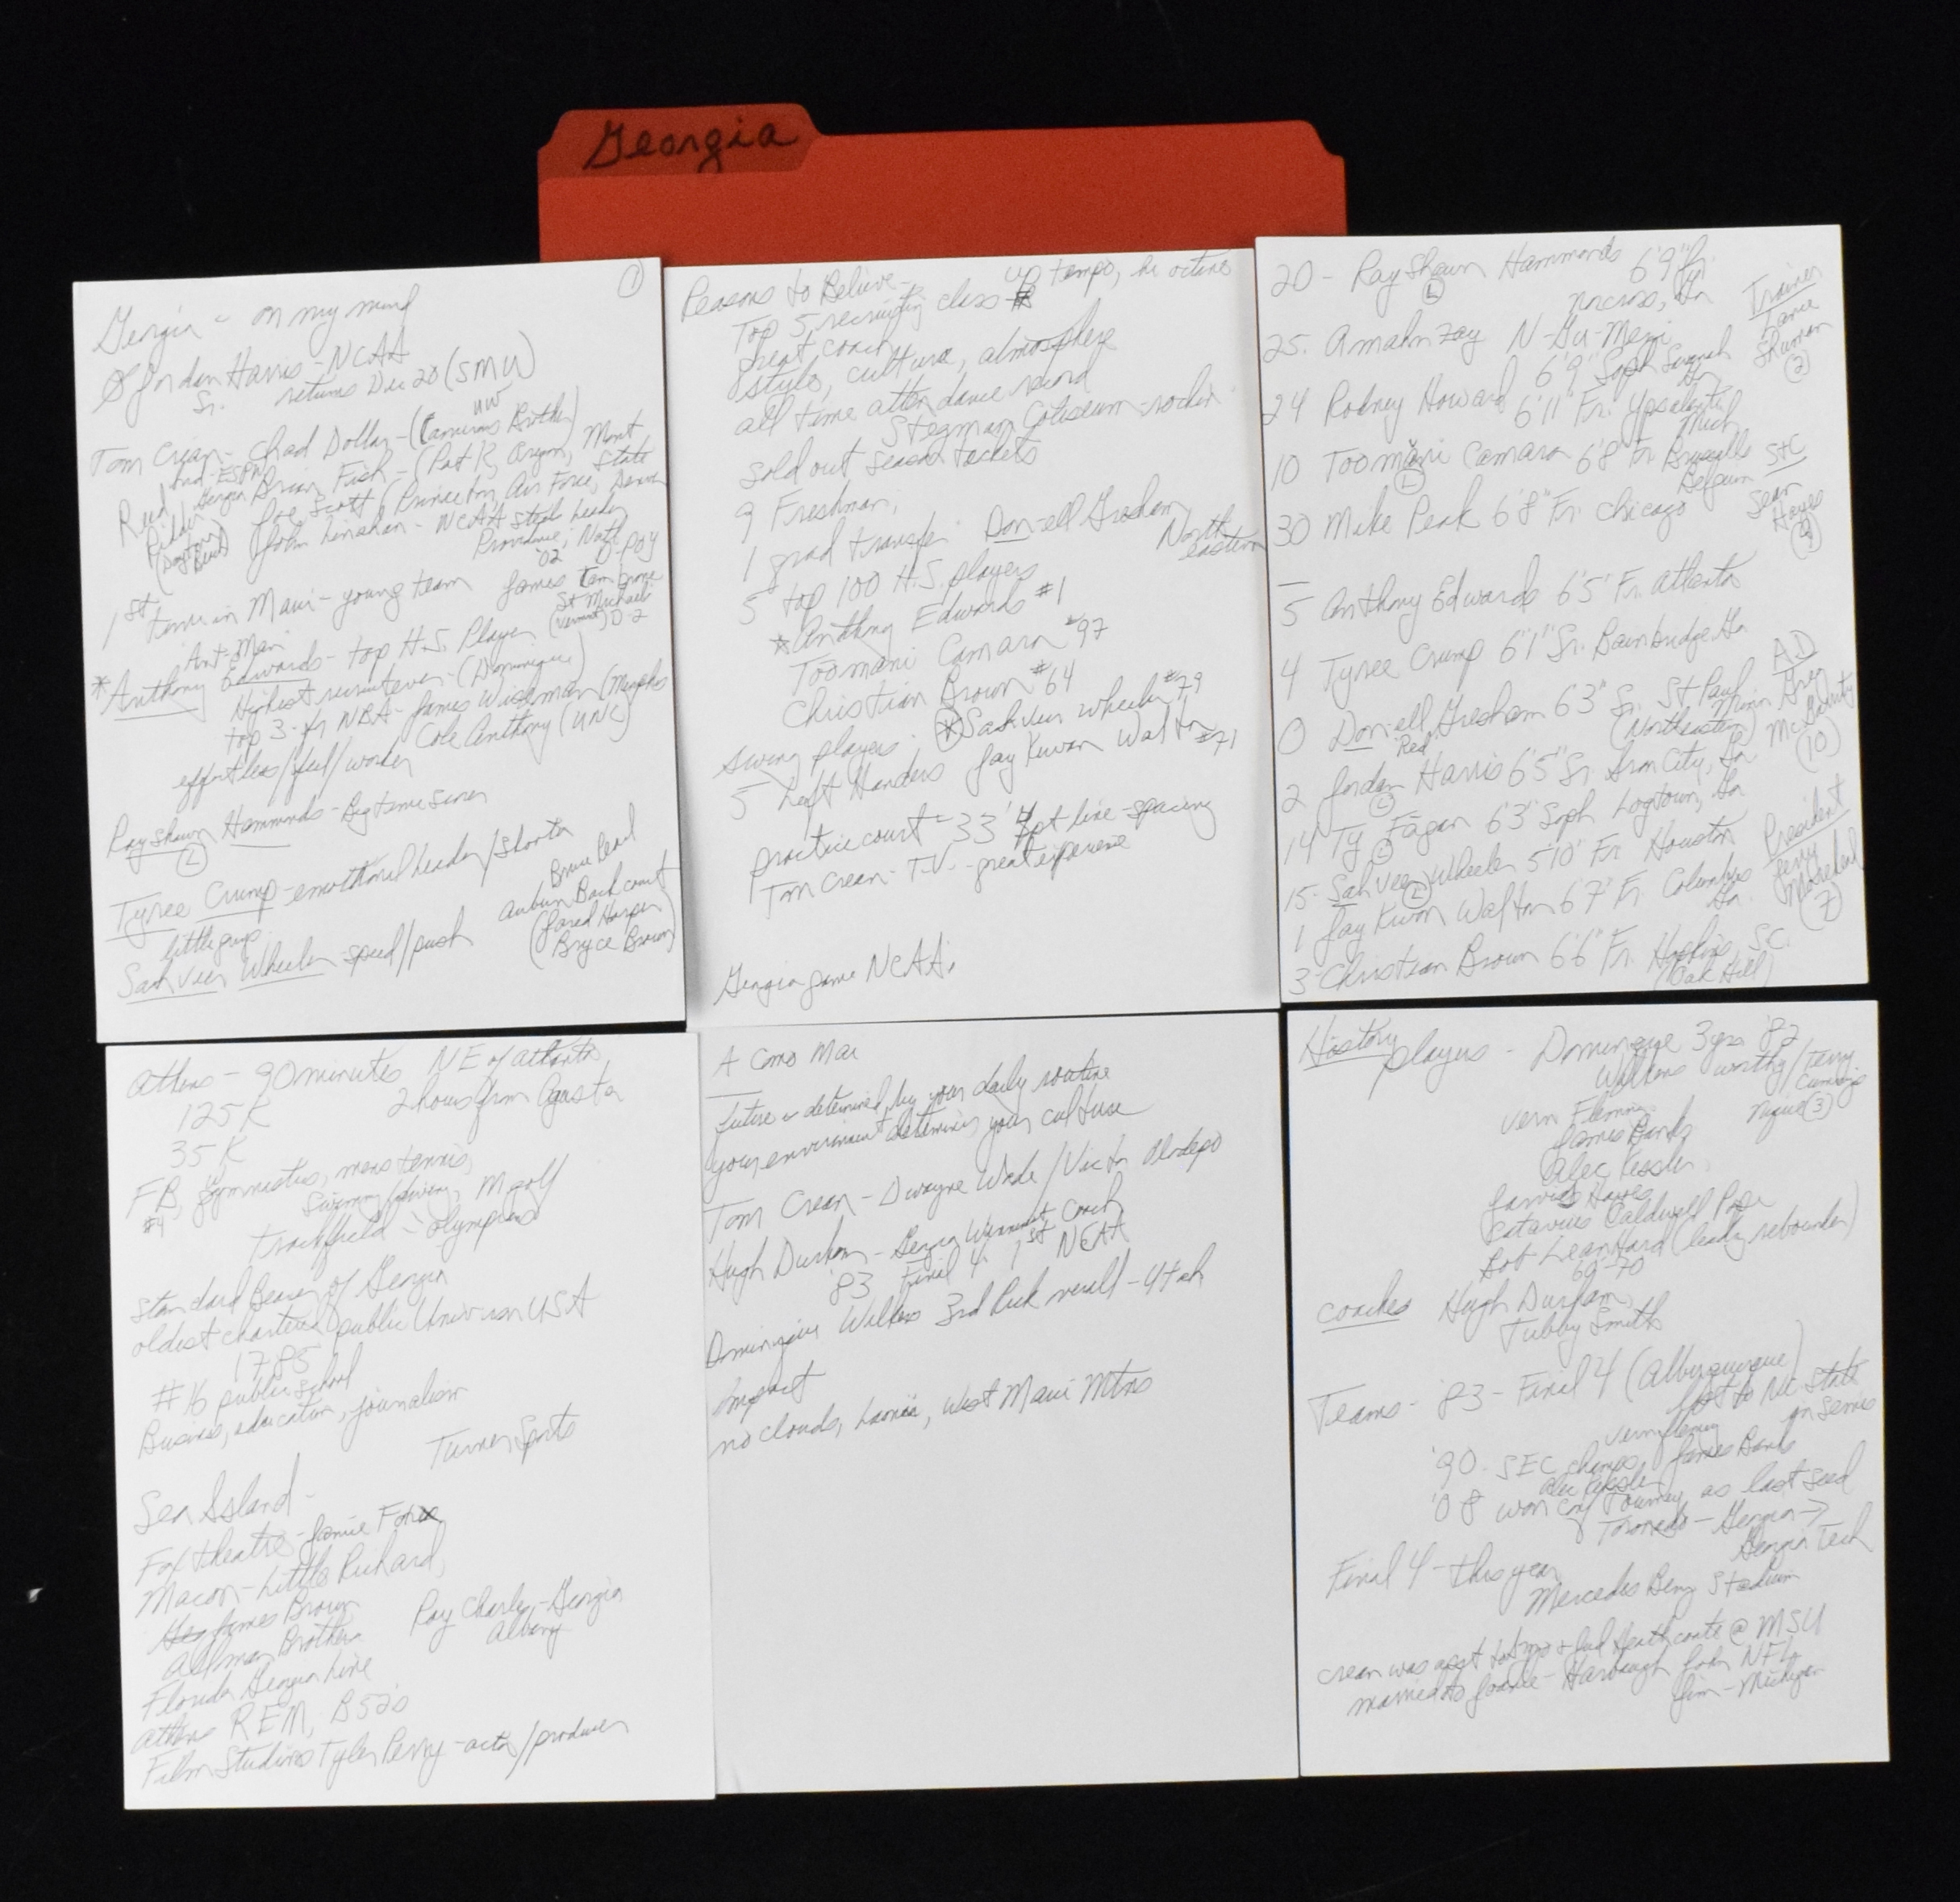 Georgia
1
Georgia - on my mind
Jordan Harris - NCAA
Sr. returns Dec 20 (SMU)
UW
Tom Crean - Chad Dollar - (Camerons Brother)
Ind - ESPN
Georgia Brian Fish - (Pat K, Oregon, Mont State
Reed Ridder Joe Scott (Princeton, Air Force, Denver
John Linehan - NCAA Steals leader
Providence, Natl POY
'02
1st time in Maui - young team James
St Michaels
(Vermont) D-2
Ant-Man
*Anthony Edwards - top H.S. Player
Highest recruit ever - (Dominique)
top 3 - fr NBA - James Wiseman (Memphis
effortless/feel/worker Cole Anthony (UNC)
Rayshaun Hammonds - Big time scorer
L
Tyree Crump - emotional leader/shooter
Bruce Pearl
little guys Auburn Backcourt
(Jared Harper
Sahveer Wheeler - speed/push Bryce Brown)
Reasons to Believe - up tempo, hi octane
Top 5 recruiting class
great coach
style, culture, atmosphere
all time attendance record
Stegman Coliseum - rockin
sold out season tickets
9 Freshman,
1 grad transfer Don-ell Gresham
North eastern
5 top 100 H.S. players
*Anthony Edwards #1
Toomani Camara #97
Christian Brown #64
* Sahveer Wheeler #79
swing players. Jay Kwon Walton #71
5 Left Handers
practice court - 33' 4pt line - spacing
Tom Crean - T.V. - great experience
Georgia game NCAA.
20 - RayShaun Hammonds 6'9" Jr.
L
Norcross, Ga
25. Amahn zay N-Gu-Mezi
6'9" Soph Suwanah Ga
24 Rodney Howard 6'11" Fr. Ypsalanti Mich
10 Toomani Camara 6'8" Fr Brussells Belgium
L
30 Mike Peak 6'8" Fr. Chicago
Trainer
Lance
Shuman
2
S+C
Sean
Hayes
9
5 Anthony Edwards 6'5" Fr. Atlanta
4 Tyree Crump 6'1" Sr. Bainbridge Ga
0 Don-ell Gresham 6'3" Sr. St Paul, Minn
"Red" (Northeastern)
2 Jordan Harris 6'5" Sr. Iron City, Ga
L
14 Ty Fagan 6'3" Soph Logtown, Ga
L
15. Sah Veer Wheeler 5'10" Fr Houston
L
1 Jay Kwon Walton 6'7" Fr. Columbus Ga.
3 Christian Brown 6'6" Fr. Hopkins, SC.
(Oak Hill)
AD
Greg
McGarity
10
President
Jerry
Morehead
7
Athens - 90 minutes NE of Atlanta
125K 2 hours from Agusta
35K
FB, gymnastics, mens tennis,
#4 Swimming/diving, M golf
Track/field - Olympians
Standard Bearer of Georgia
oldest chartered public Univ in USA
1785
#16 public school
Business, education, journalism
Turner Sports
Sea Island -
Fox theatre - Jamie Foxx
Macon - Little Richard,
James Brown Ray Charles - Georgia
Allman Brothers Albany
Florida Georgia Line
Athens REM, B52's
Film Studios Tyler Perry - actor/producer
A Como Mai
future is determined by your daily routine
your environment determines your culture
Tom Crean - Dwayne Wade/Victor Oladepo
Hugh Durham - Georgia Winningest Coach
'83 Final 4. 1st NCAA
Dominique Wilkins 3rd Pick overall - Utah
Impact
no clouds, Lanai, West Maui Mtns
History players - Dominique 3yrs '82
Wilkins Worthy/Terry Cummings
Vern Fleming
James Banks
Alec Kessler,
Jarvis Hayes
Kentavious Caldwell Pope
Bob Leanhard (leading rebounder)
69-70
coaches Hugh Durham,
Tubby Smith
Teams - '83 - Final 4 (Alburquerque)
lost to NC State
Vern Fleming in semis
'90. SEC champs James Banks
Alec Kessler
'08 won conf Tourney as last seed
Tornado - Georgia →
Georgia Tech
Final 4 - this year
Mercedes Benz Stadium
Crean was asst to Izzo + Jud Heathcoate @ MSU
married to Joanie - Harbaugh John NFL
Jim - Michigan